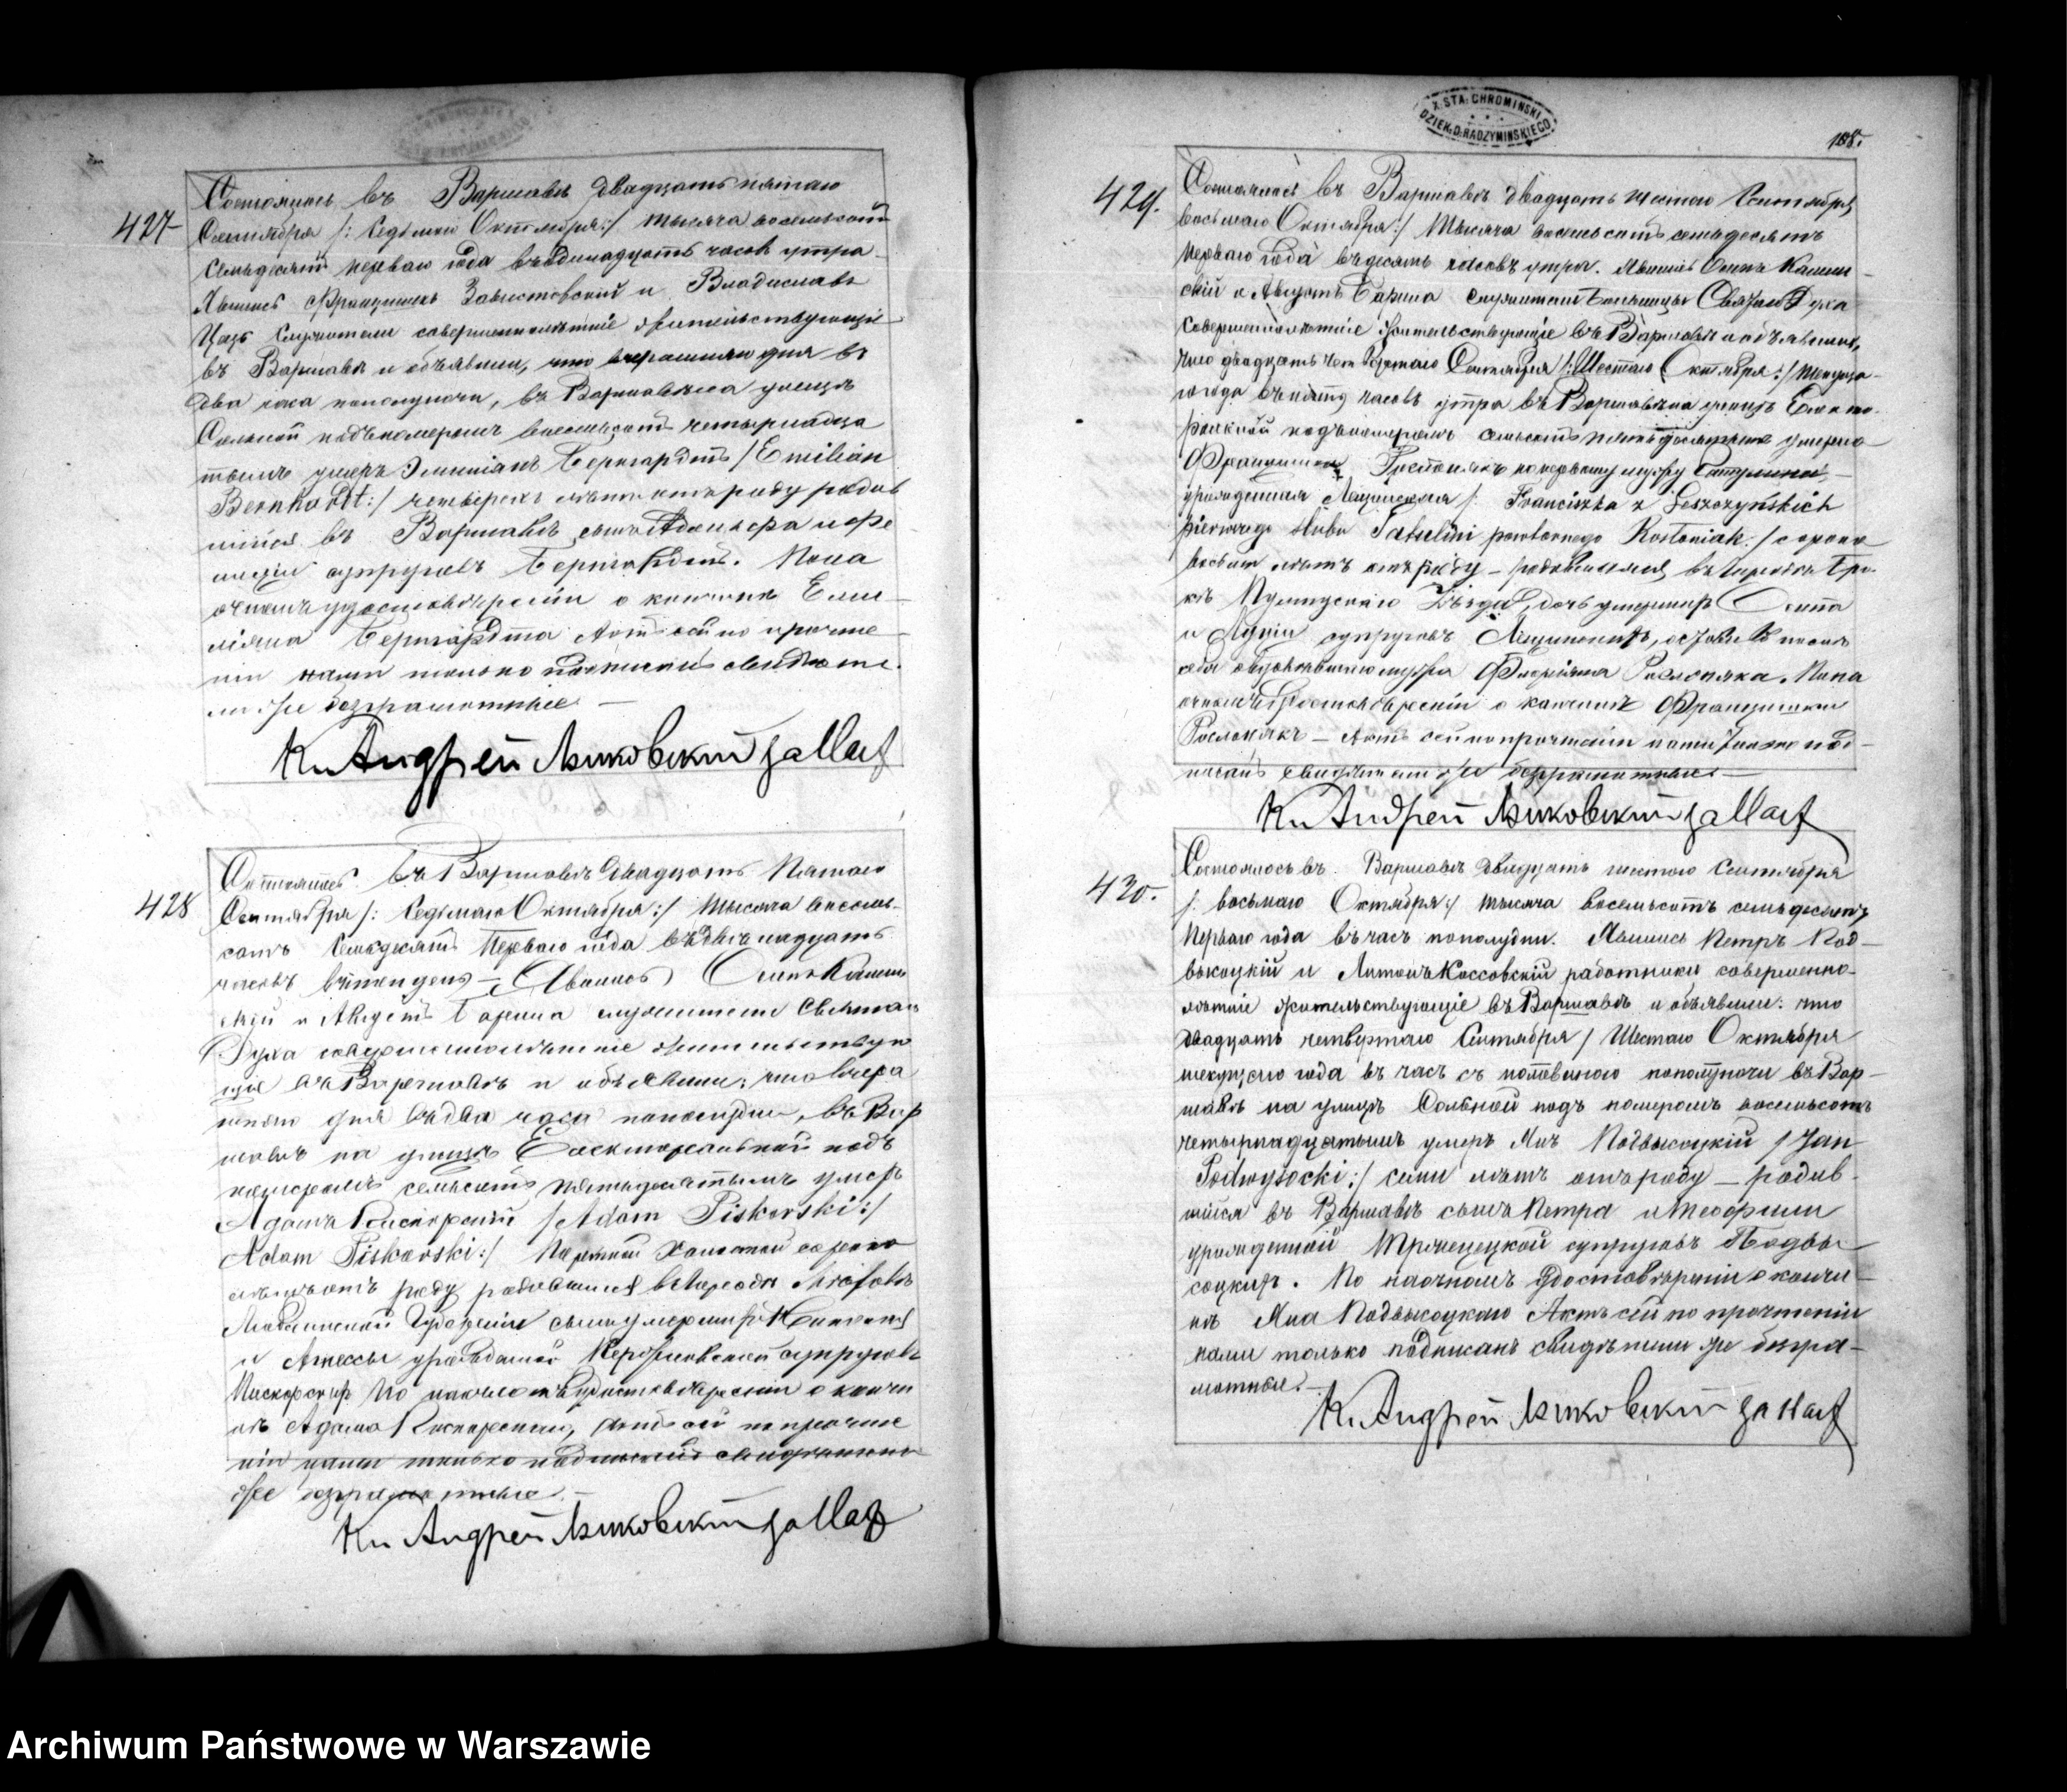 427
Состоялось въ Варшавѣ двадцать пятаго
Сентября /: Седьмаго Октября :/ тысяча восемьсотъ
семьдесятъ перваго года въ одинадцать часовъ утра
Явились Францишекъ Завистовский и Владиславъ
служители совершеннолѣтніе жительствующіе
въ Варшавѣ и объявили, что вчерашняго дня въ
два часа пополуночи, въ Варшавѣ на улицѣ
Сольной подъ номеромъ восемьсотъ четырнадца
тымъ умеръ Эмиліанъ Бернгардтъ / Emilian
Bernhardt :/ четырехъ лѣтъ отъ роду родив
шійся въ Варшавѣ, сынъ
супруговъ Бернгардтъ. По на
очномъ удостовѣреніи о кончинѣ Еми
ліяна Бернгардта Актъ сей по прочте
ніи нами только подписанъ свидѣте
ли же безграмотные —
Кс Андрей
428
Состоялось въ Варшавѣ двадцать Пятаго
Сентября /: Седьмаго Октября :/ тысяча восемь
сотъ семьдесятъ Перваго года въ двѣнадцать
часовъ въ полдень — Явились Осипъ Камин
скій и Августъ Барша служители Святаго
Духа совершеннолѣтніе жительствую
щіе въ Варшавѣ и объявили, что вчера
шняго дня въ два часа пополудни, въ Вар
шавѣ на улицѣ Електоральной подъ
номеромъ семьсотъ пятьдесятымъ умеръ
Адамъ Пискорский / Adam Piskorski :/
Adam Piskorski :/ холостой сорока
лѣтъ отъ роду родившійся въ городѣ
Люблинской Губерніи сынъ умершихъ
и урожденной супруговъ
Пискорскихъ По наочномъ удостовѣреніи о кончи
нѣ Адама Пискорскаго, Актъ сей по прочте
ніи нами только подписанъ свидѣтели
же безграмотные. —
Кс Андрей
X. STA: CHROMIŃSKI
DZIEK. D. RADZYMIŃSKIEGO
108.
429.
Состоялось въ Варшавѣ двадцать шестаго Сентября
восьмаго Октября :/ тысяча восемьсотъ семьдесятъ
перваго года въ десять часовъ утра. Явились Осипъ Камин
скій и Августъ Барша служители Больницы Святаго Духа
совершеннолѣтніе жительствующіе въ Варшавѣ и объявили,
что двадцать четвертаго Сентября /: Шестаго Октября :/ текуща
го года въ пять часовъ утра въ Варшавѣ на улицѣ Електо
ральной подъ номеромъ семьсотъ пятьдесятымъ умерла
Францишка по первому мужу
урожденная /: Franciszka z Leszczyńskich
pierwszego ślubu powtórnego Rostoniak :/ сорока
восьми лѣтъ отъ роду — родившаяся въ
дочь умершихъ Осипа
и супруговъ оставивъ послѣ
себя овдовѣвшаго мужа Флоріяна По на
очномъ удостовѣреніи о кончинѣ Францишки
— Актъ сей по прочтеніи нами только под
писанъ свидѣтели же безграмотные. —
Кс Андрей
430.
Состоялось въ Варшавѣ двадцать шестаго Сентября
/: восьмаго Октября :/ тысяча восемьсотъ семьдесятъ
Перваго года въ часъ пополудни. Явились Петръ Под
высоцкій и Антонъ Коссовскій работники совершенно
лѣтніе жительствующіе въ Варшавѣ и объявили: что
двадцать четвертаго Сентября / Шестаго Октября
текущаго года въ часъ съ половиною пополуночи въ Вар
шавѣ на улицѣ Сольной подъ номеромъ восемьсотъ
четырнадцатымъ умеръ Янъ Подвысоцкій / Jan
Podwysocki :/ семи лѣтъ отъ роду — родив
шійся въ Варшавѣ сынъ Петра и Теофили
урожденной супруговъ Подвы
соцкихъ. По наочномъ удостовѣреніи о кончи
нѣ Яна Подвысоцкаго Актъ сей по прочтеніи
нами только подписанъ свидѣтели же безгра
мотные. —
Кс Андрей
Archiwum Państwowe w Warszawie